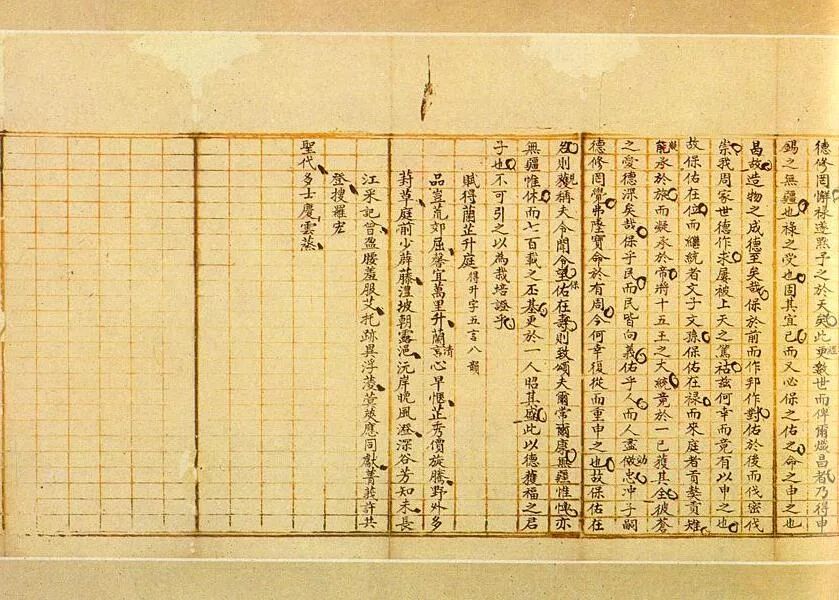 德修罔懈祿遂熙予之於天矣此更數世而俾爾熾昌者乃得申
錫之無疆也祿之受也固其宜已而又必保之佑之命之申之也
昌故造物之成德至矣哉保於前而作邦作對佑於後而伐密伐
崇我周家世德作求屢被上天之篤祜茲何幸而竟有以申之也
故保佑在位而繼統者文子文孫保佑在祿而來庭者貢獒貢雉
承於旅而凝承於常將十五王之大統竟於一已獲其全彼蒼
之愛德深矣哉保乎民而民皆向義佑乎人而人盡傚忠沖子嗣
德修罔覺弗墜寶命於有周今何幸復從而重申之也故保佑在
名則獲稱夫令聞令望佑在壽則致頌夫爾常爾康無疆惟恤亦
無疆惟休而七百載之丕基更於一人昭其盛此以德獲福之君
子也不可引之以為栽培證乎
賦得蘭芷升庭 得升字五言八韻
品豈荒郊屈馨宜萬里升蘭言心早愜芷秀價旋騰野外多
葑草庭前少薜藤澧坡朝露浥沅岸晚風澄深谷芳知未長
江采記曾盈腰羞服艾托跡異浮菱萱莢應同獻菁莪許共
登搜羅宏
聖代多士慶雲蒸